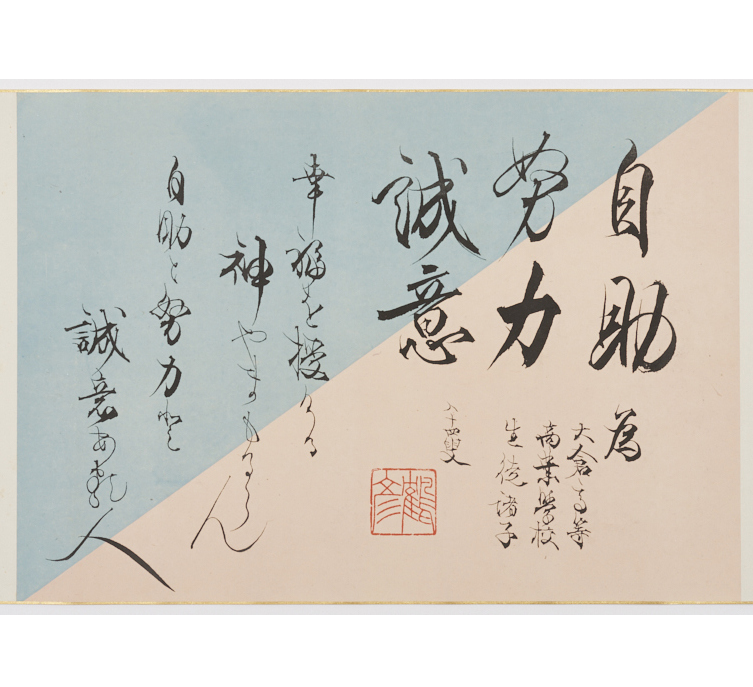 自助
努力
誠意
為
大倉高等
商業學校
生徒諸子
八十四叟
鶴彦
幸福を授くる
神やまもるらん
自助と努力と
誠意ある人